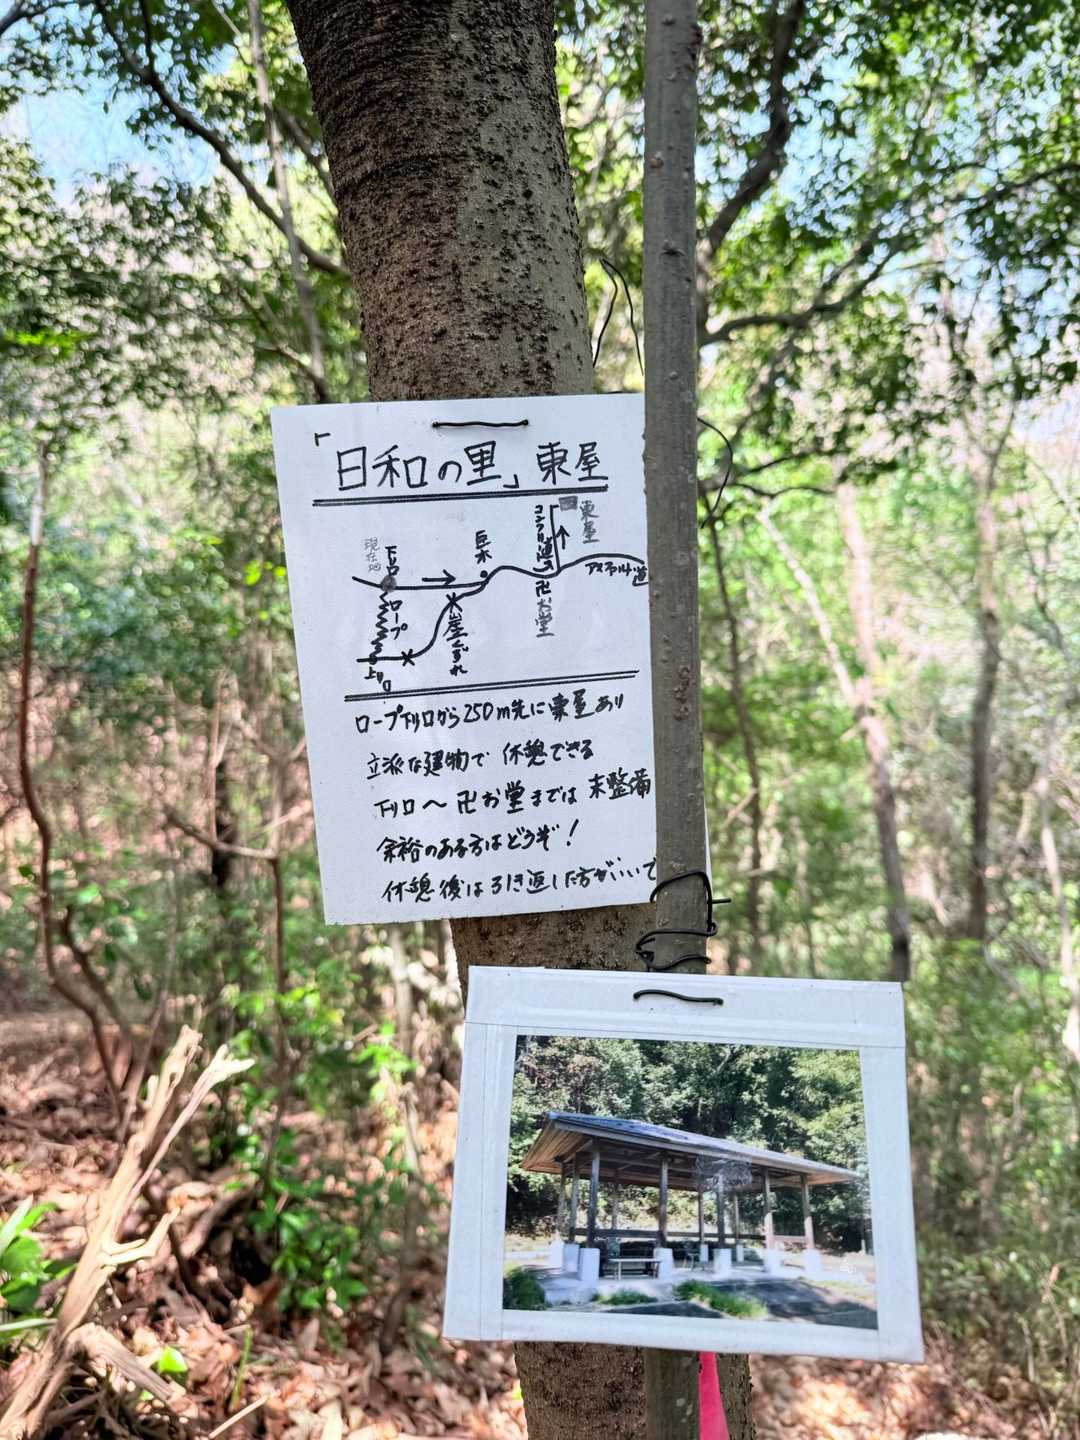 「日和の里」東屋
東屋
コンクリ道
現在地
下り口
巨木
アスファルト道
卍お堂
ロープ
崖くずれ
上り口
ロープ下り口から250m先に東屋あり
立派な建物で 休憩できる
下り口〜卍お堂までは 未整備
余裕のある方はどうぞ!
休憩後は引き返した方がいいで